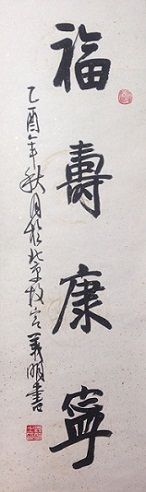 福壽康寧
乙酉年秋月於北京故宫美明書